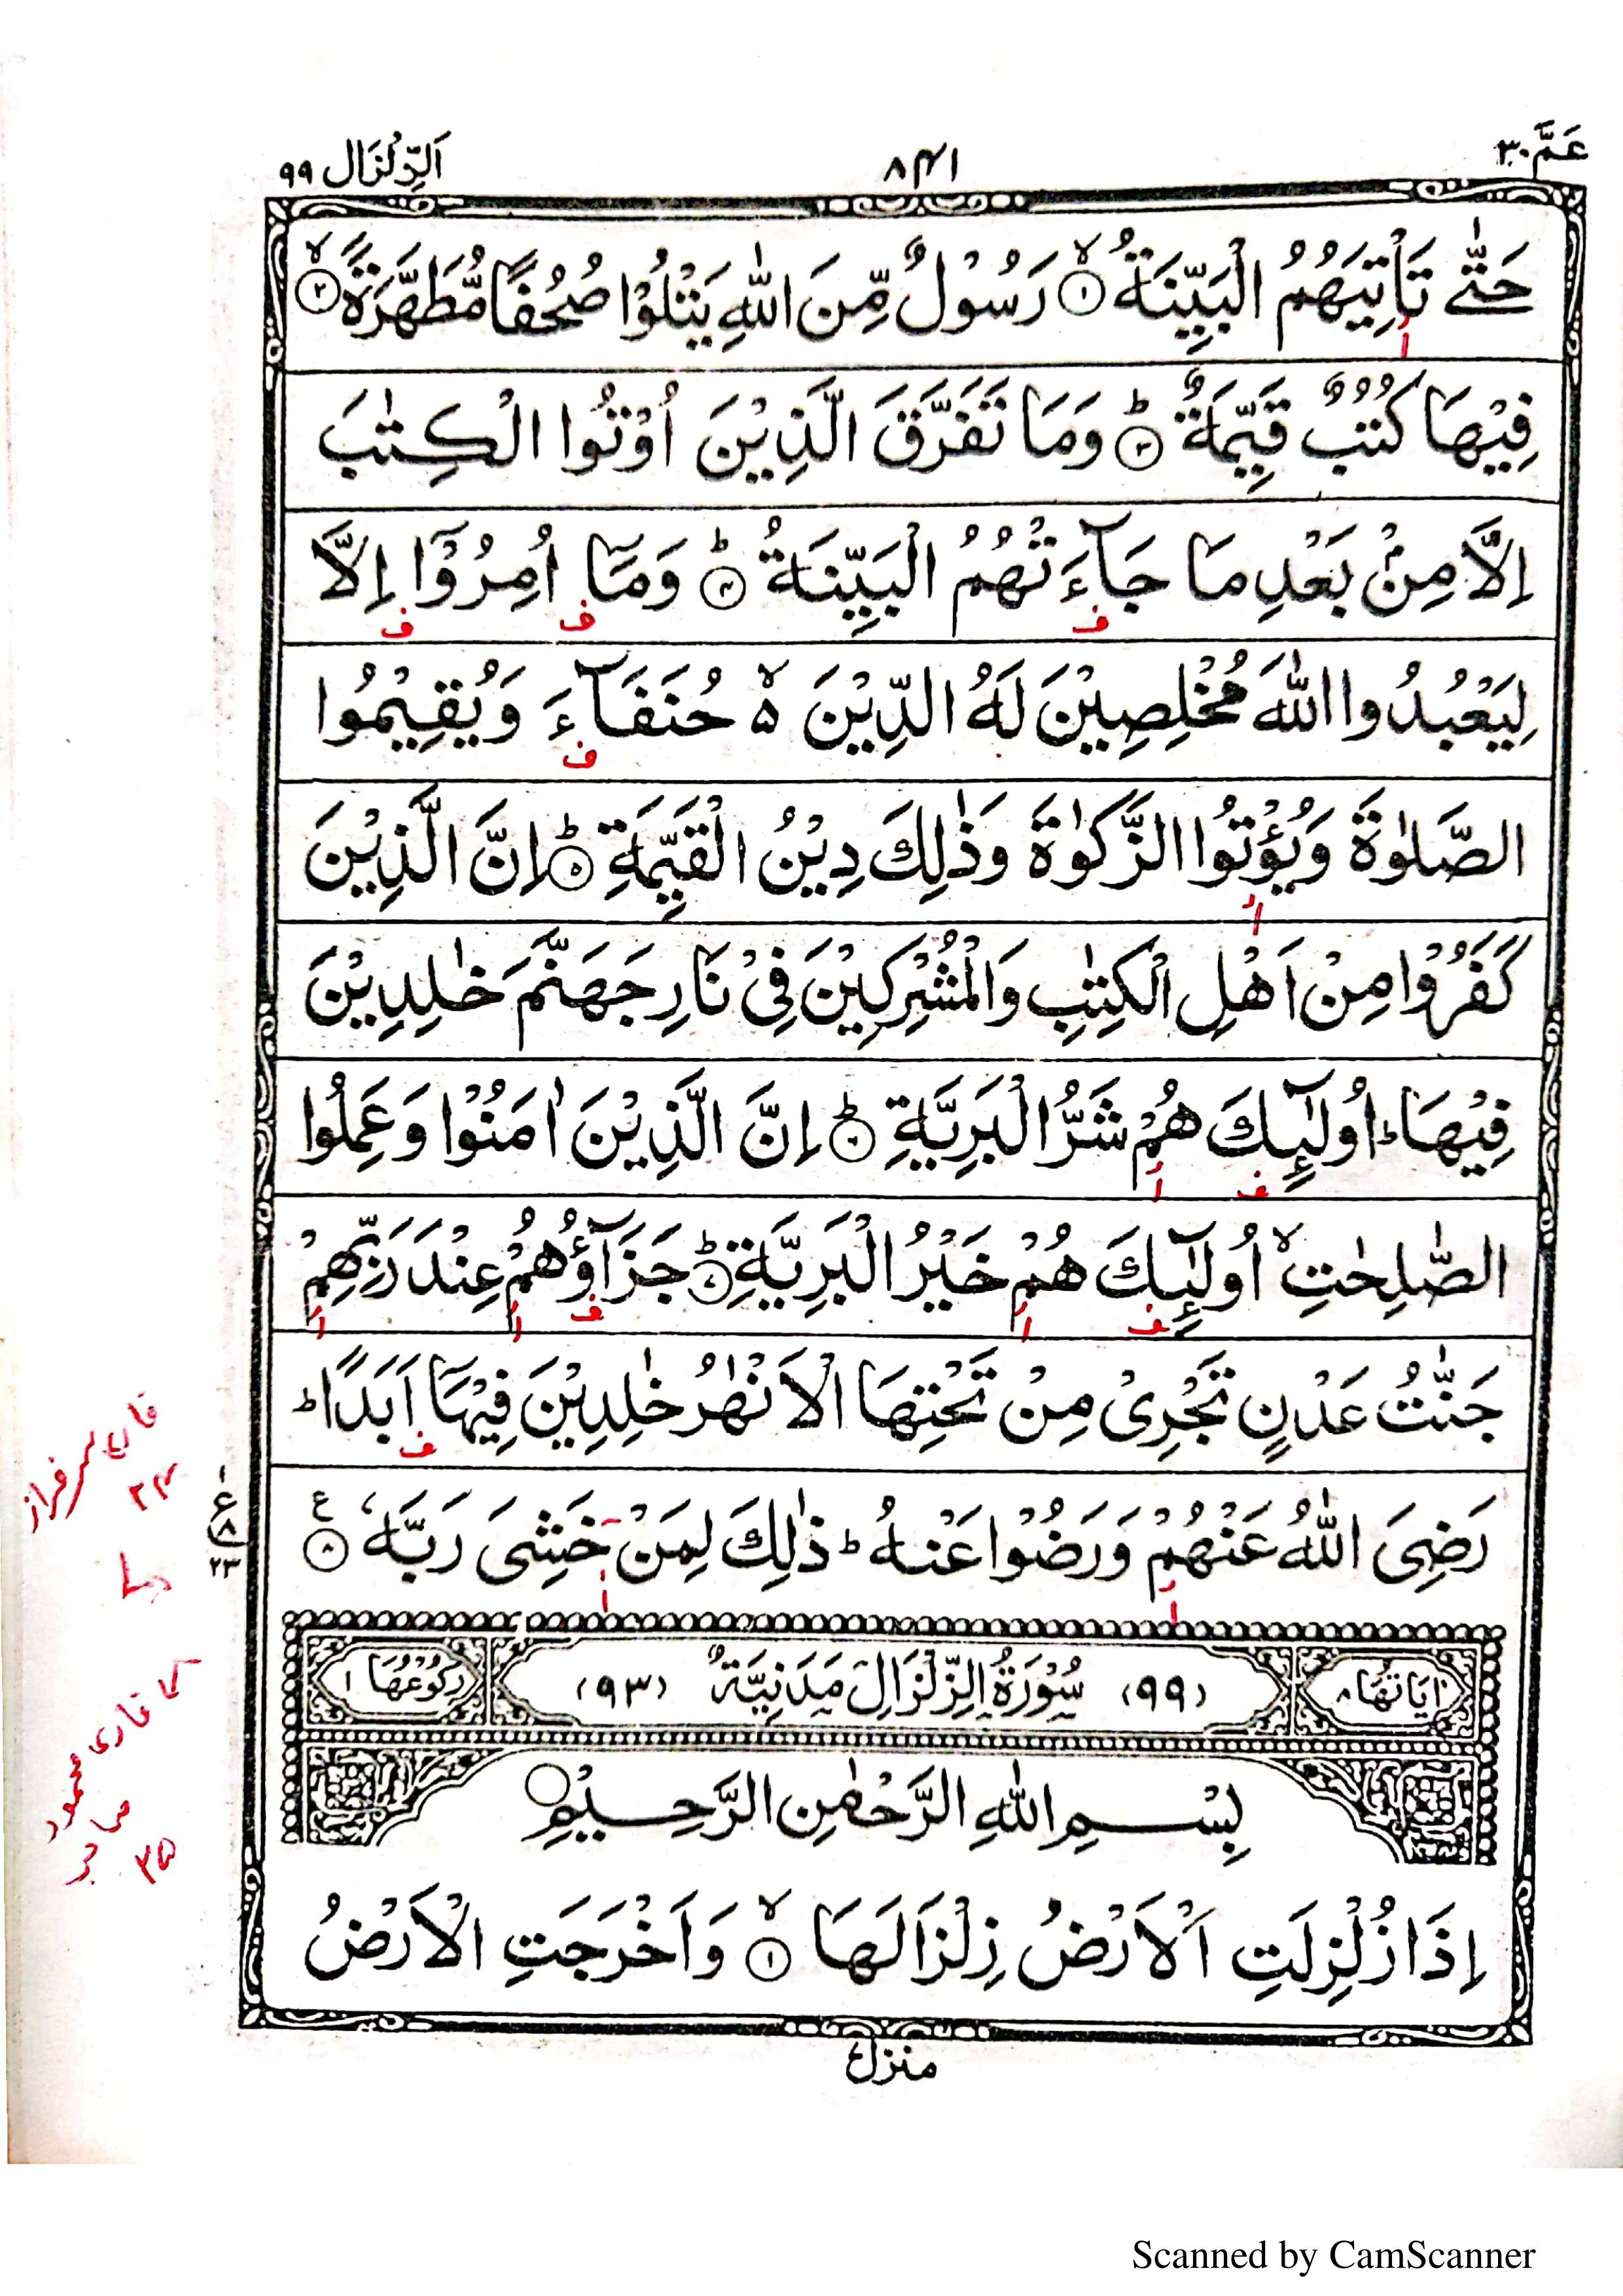 عَمَّ ٣٠
٨٤١
اَلزِّلْزَال ٩٩
حَتّٰى تَاْتِيَهُمُ الْبَيِّنَةُ ۙ۝١ رَسُوْلٌ مِّنَ اللّٰهِ يَتْلُوْا صُحُفًا مُّطَهَّرَةً ۙ۝٢
فِيْهَا كُتُبٌ قَيِّمَةٌ ؕ۝٣ وَمَا تَفَرَّقَ الَّذِيْنَ اُوْتُوا الْكِتٰبَ
اِلَّا مِنْۢ بَعْدِ مَا جَآءَتْهُمُ الْبَيِّنَةُ ؕ۝٤ وَمَاۤ اُمِرُوْۤا اِلَّا
لِيَعْبُدُوا اللّٰهَ مُخْلِصِيْنَ لَهُ الدِّيْنَ ۙ۬ حُنَفَآءَ وَيُقِيْمُوا
الصَّلٰوةَ وَيُؤْتُوا الزَّكٰوةَ وَذٰلِكَ دِيْنُ الْقَيِّمَةِ ؕ۝٥ اِنَّ الَّذِيْنَ
كَفَرُوْا مِنْ اَهْلِ الْكِتٰبِ وَالْمُشْرِكِيْنَ فِيْ نَارِ جَهَنَّمَ خٰلِدِيْنَ
فِيْهَا ؕ اُولٰٓئِكَ هُمْ شَرُّ الْبَرِيَّةِ ؕ۝٦ اِنَّ الَّذِيْنَ اٰمَنُوْا وَعَمِلُوا
الصّٰلِحٰتِ ۙ اُولٰٓئِكَ هُمْ خَيْرُ الْبَرِيَّةِ ؕ۝٧ جَزَآؤُهُمْ عِنْدَ رَبِّهِمْ
جَنّٰتُ عَدْنٍ تَجْرِيْ مِنْ تَحْتِهَا الْاَنْهٰرُ خٰلِدِيْنَ فِيْهَاۤ اَبَدًا ؕ
رَضِيَ اللّٰهُ عَنْهُمْ وَرَضُوْا عَنْهُ ؕ ذٰلِكَ لِمَنْ خَشِيَ رَبَّهٗ ۝٨ ع
١
ع ٨
٢٣
قاری سرفراز
٢٤
قاری محمود
صاحب
٣٥
اٰيَاتُهَا ٨
(٩٩) سُوْرَةُ الزِّلْزَالِ مَدَنِيَّةٌ (٩٣)
رُكُوْعُهَا ١
بِسْمِ اللّٰهِ الرَّحْمٰنِ الرَّحِيْمِ ۝
اِذَا زُلْزِلَتِ الْاَرْضُ زِلْزَالَهَا ۙ۝١ وَاَخْرَجَتِ الْاَرْضُ
منزل
Scanned by CamScanner